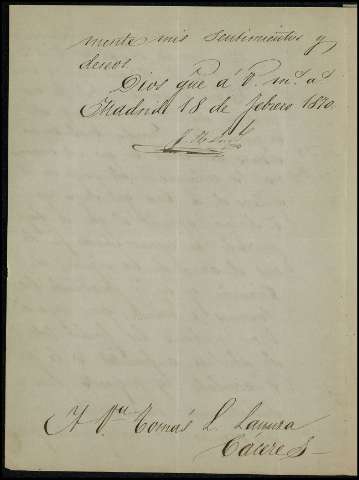 mente mis sentimientos y
deseos.
Dios gue á V. m.s a.s
Madrid 18 de febrero 1870.
Tomás L.
Cáceres